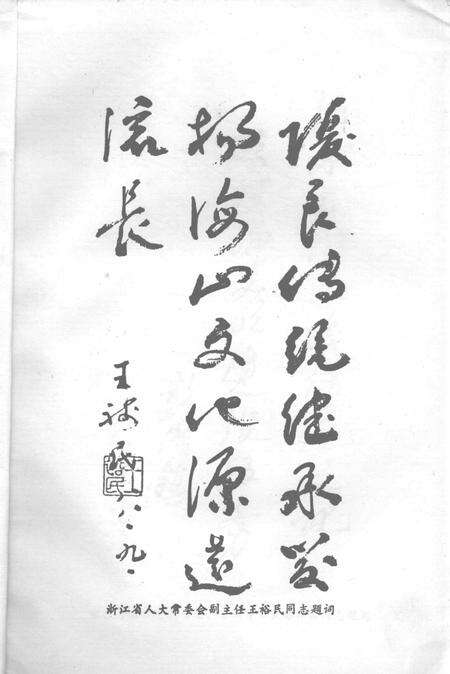 优良传统继承发
扬海山文化源远
流長
王裕民
八、九、
浙江省人大常委会副主任王裕民同志题词